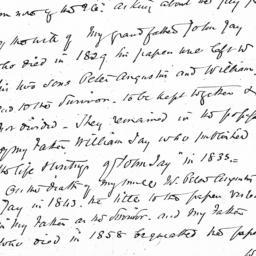 asking about the
By the will of My grandfather John Jay
who died in 1829 his papers were left to
his two sons Peter Augustus and William
and to the Survivor. to be kept together &
not divided – They remained in the
of my Father, William Jay who published
the life & writings of John Jay" in 1833 =
On the death of my uncle Peter Augustus
Jay in 1843. the title to the papers vested
in my Father as the Survivor. and my Father
who died in 1858 bequeathed the papers